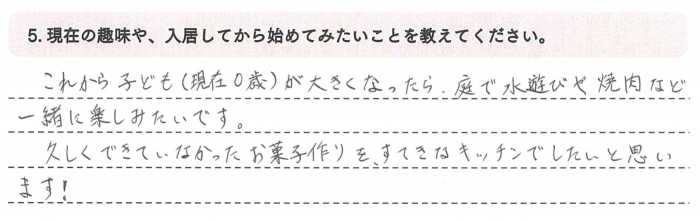 5. 現在の趣味や、入居してから始めてみたいことを教えてください。
これから子ども(現在0歳)が大きくなったら、庭で水遊びや焼肉など
一緒に楽しみたいです。
久しくできていなかったお菓子作りを、すてきなキッチンでしたいと思い
ます!